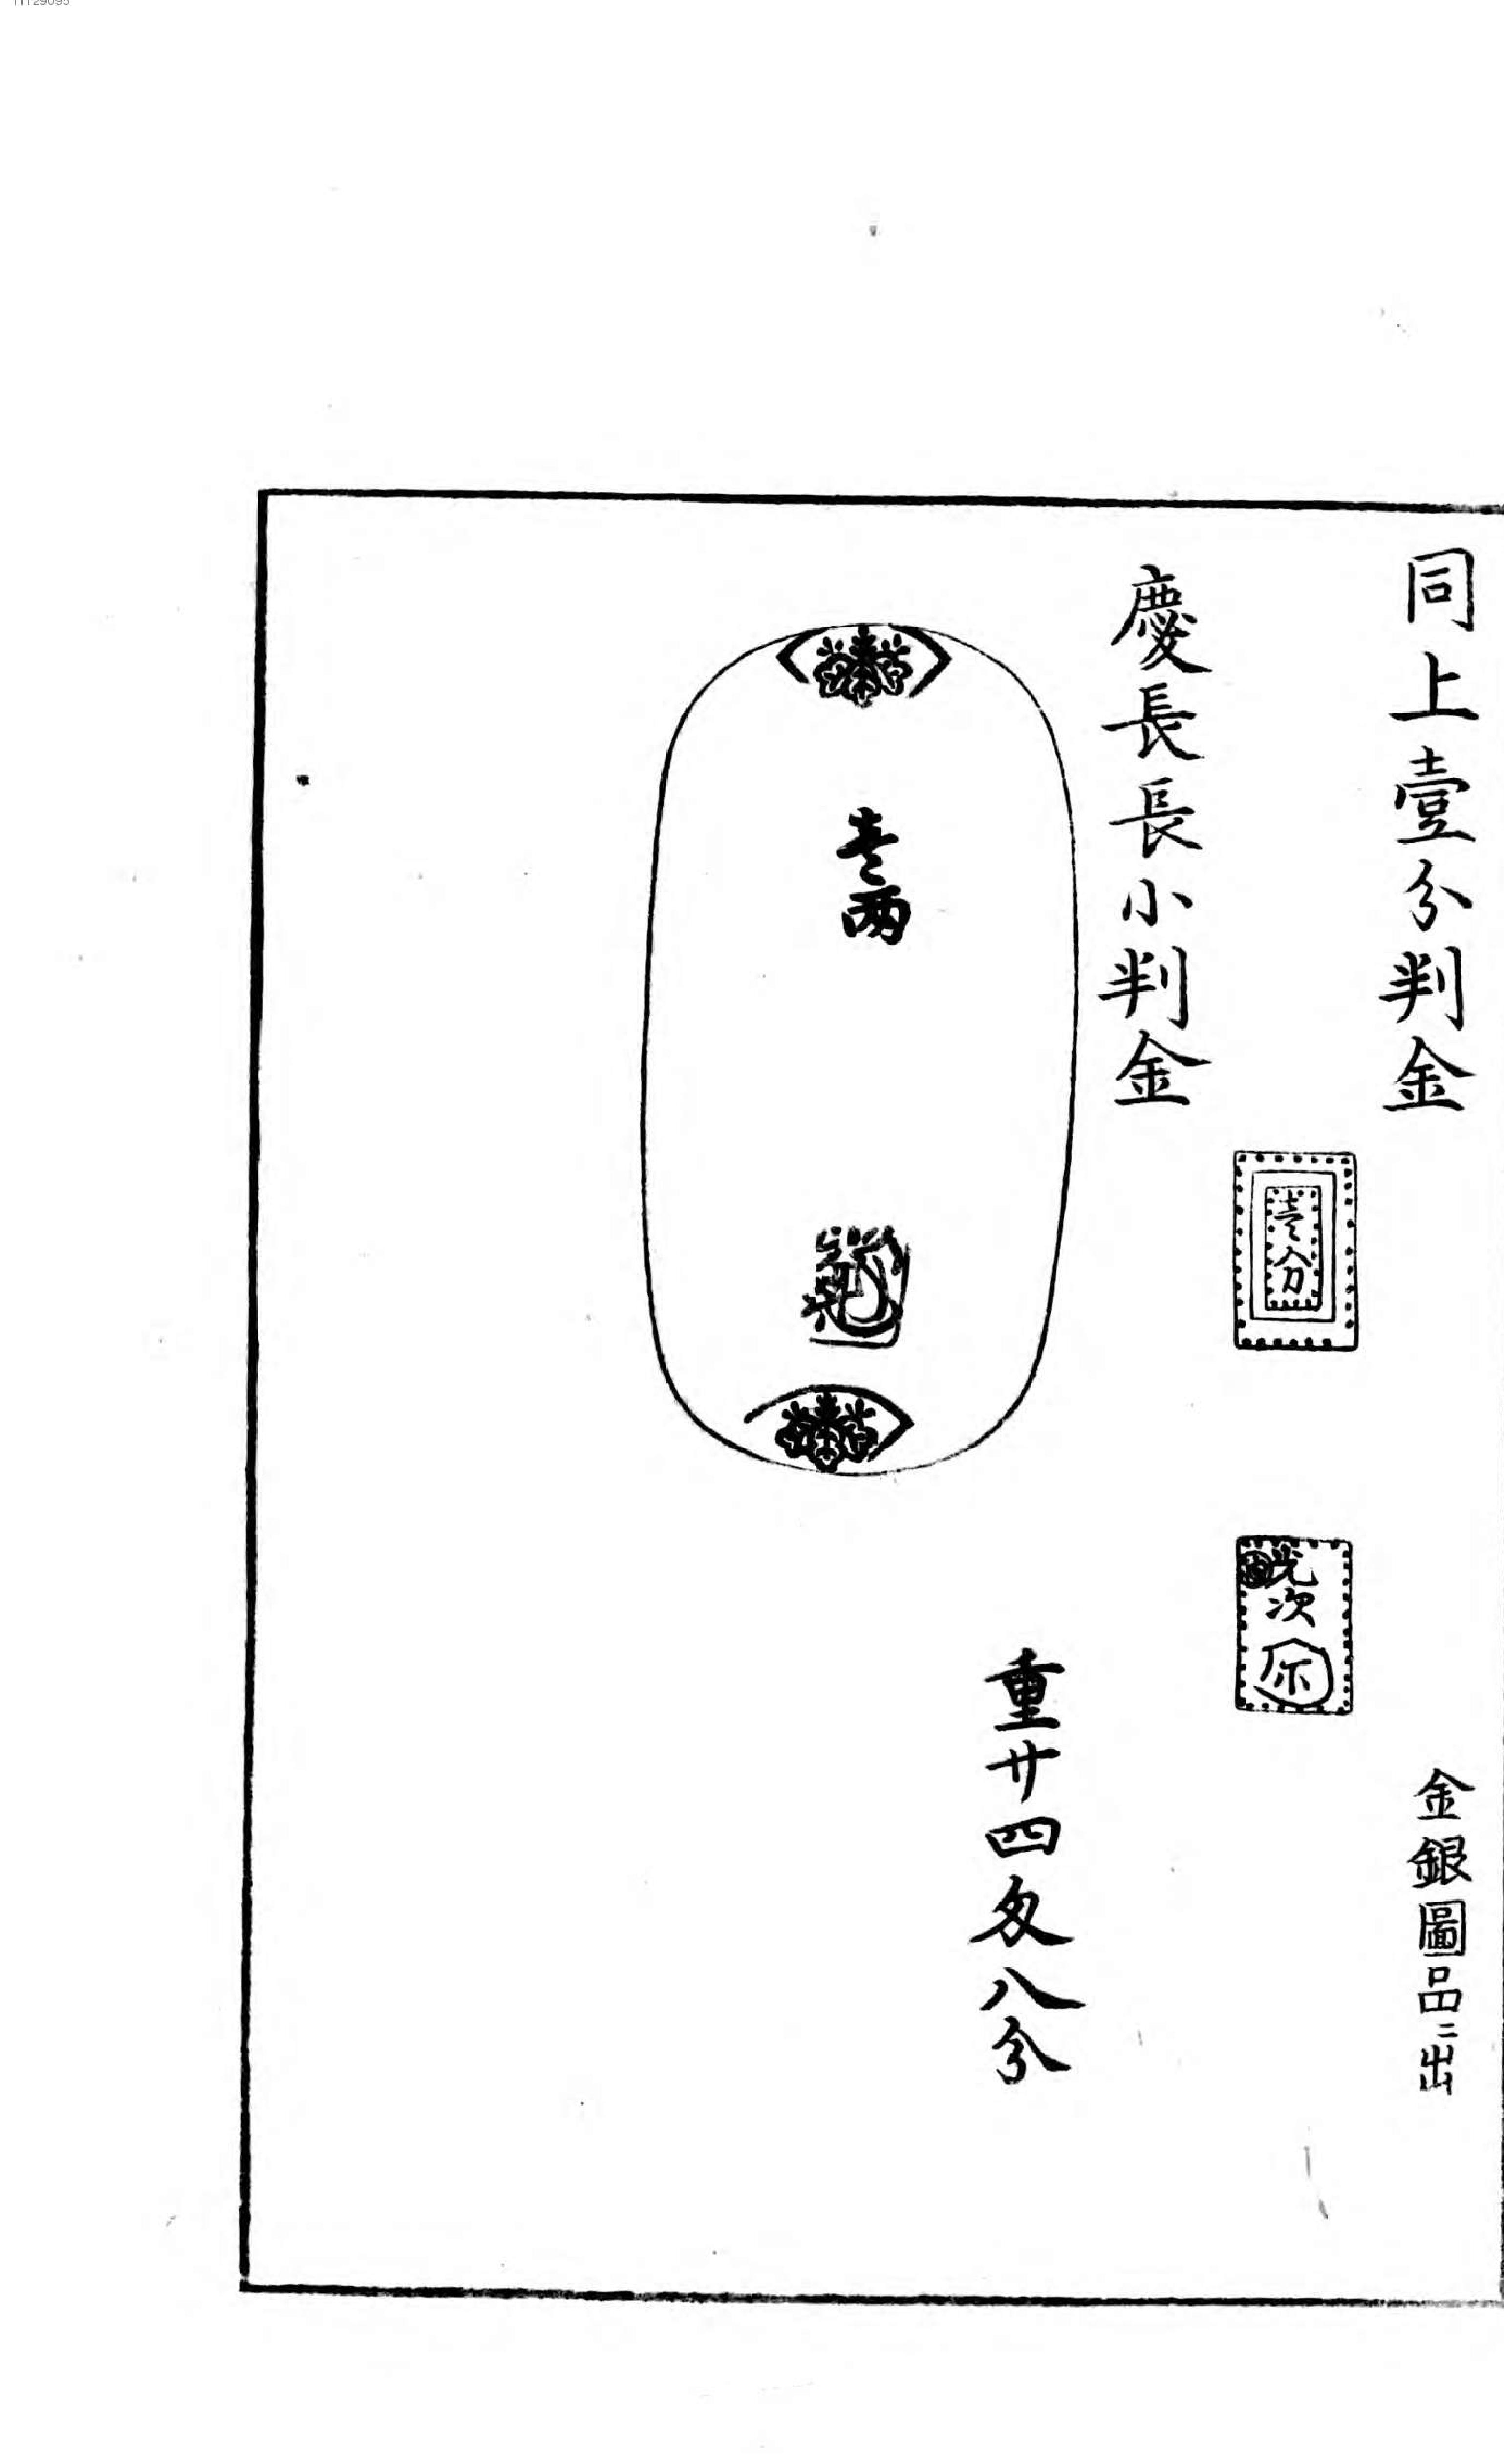 同上壹分判金
金銀圖品ニ出
壱分
光次
慶長長小判金
壱両
重廿四匁八分